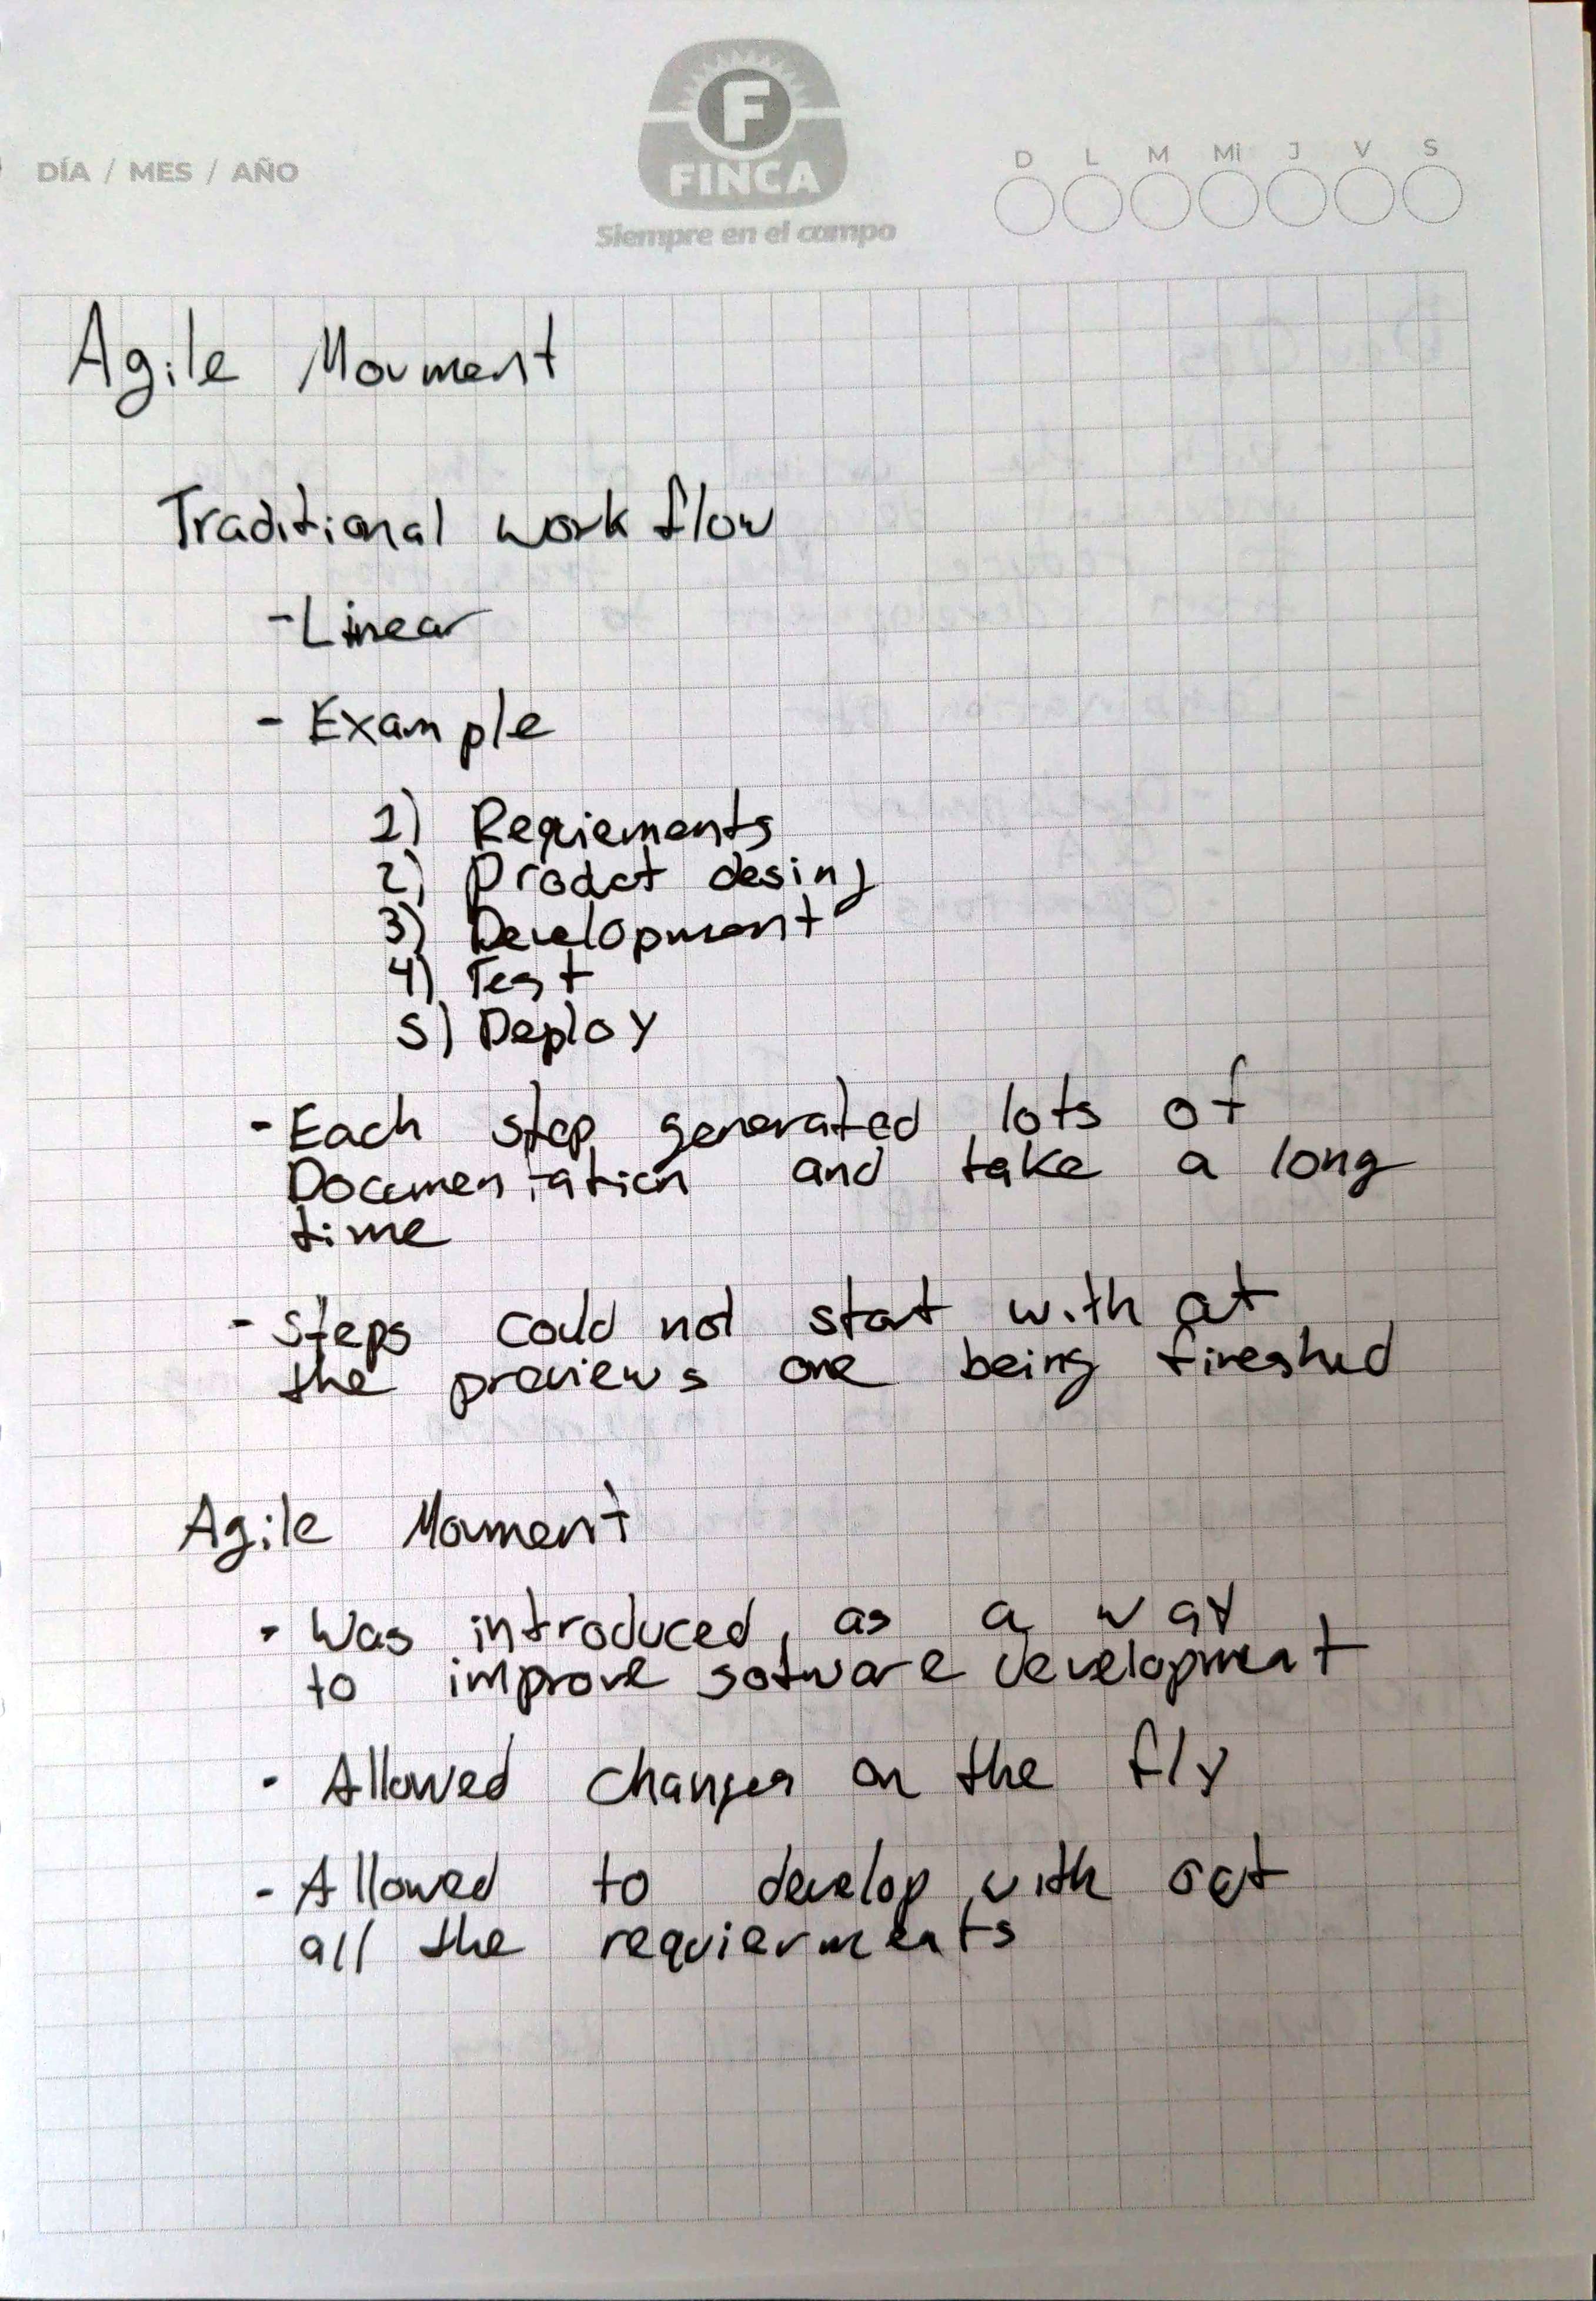 DÍA / MES / AÑO
F
FINCA
Siempre en el campo
D L M Mi J V S
Agile Movment
Traditional work flow
- Linear
- Example
1) Requiements
2) Prodct desing
3) Development
4) Test
5) Deploy
- Each step generated lots of
Documentation and take a long
time
- Steps could not start with at
the previews one being fineshed
Agile Movment
- Was introduced, as a way
to improve sotware development
- Allowed changes on the fly
- Allowed to develop with out
all the requierments